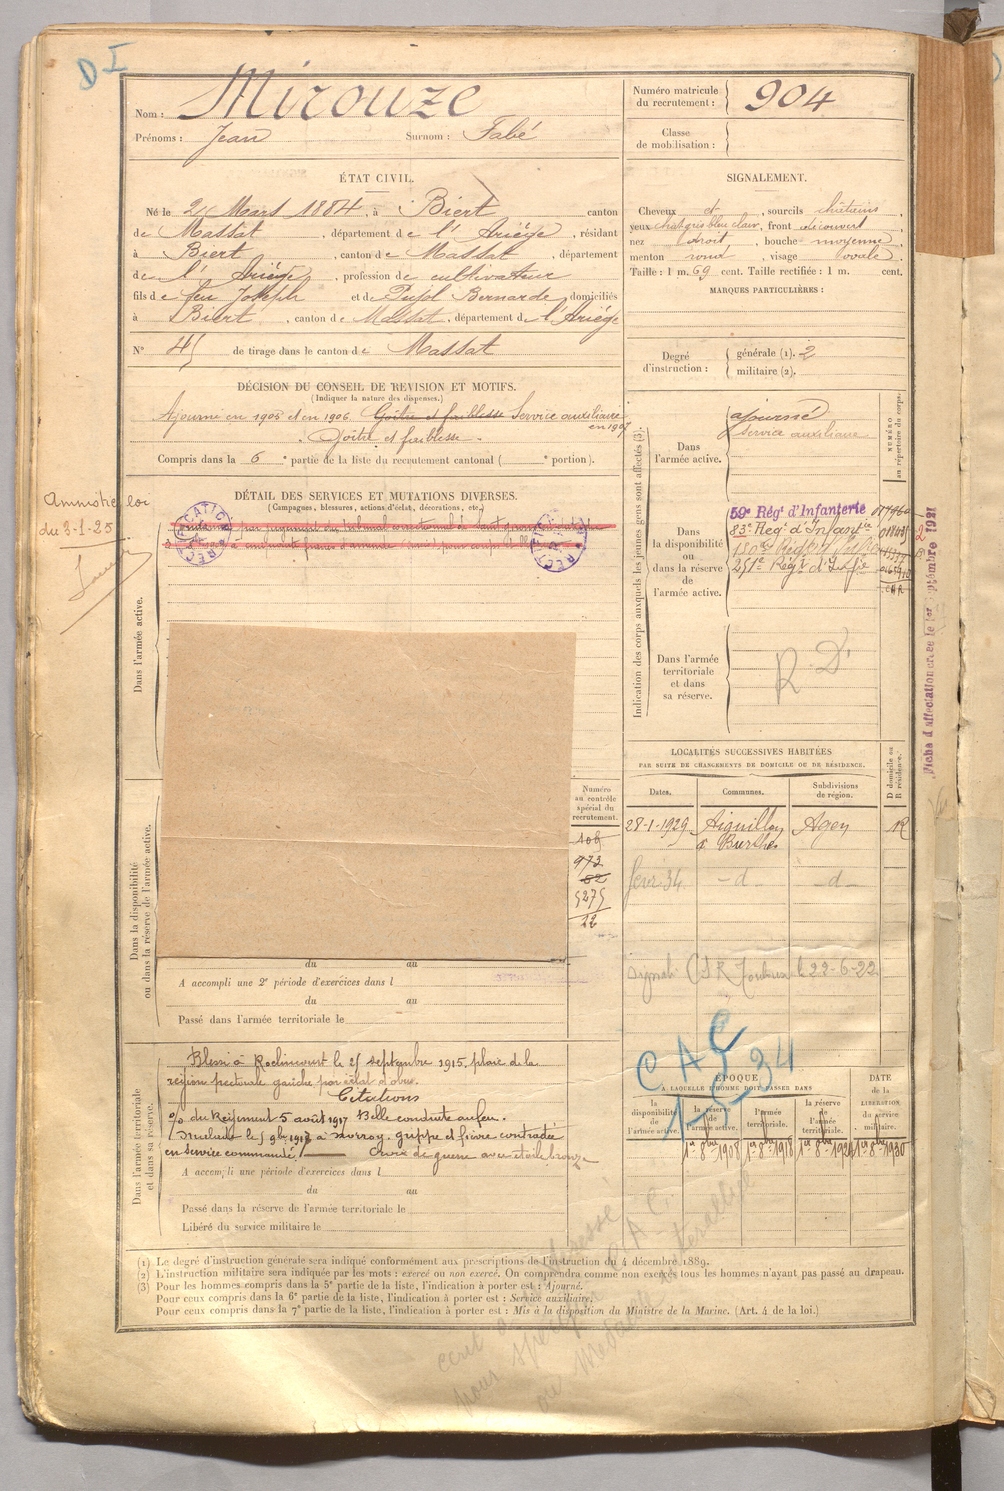 D I
Nom : Mirouze
Prénoms : Jean Surnom : Fabé
Numéro matricule
du recrutement : 904
Classe
de mobilisation :
ÉTAT CIVIL.
Né le 2 Mars 1884, à Biert canton
de Massat, département de l'Ariège, résidant
à Biert, canton de Massat, département
de l'Ariège, profession de cultivateur
fils de feu Joseph et de Pujol Bernarde, domiciliés
à Biert, canton de Massat, département de l'Ariège
N° 45 de tirage dans le canton de Massat
SIGNALEMENT.
Cheveux et, sourcils châtains,
yeux chat gris bleu clair, front découvert,
nez droit, bouche moyenne,
menton rond, visage ovale.
Taille : 1 m. 69 cent. Taille rectifiée : 1 m. cent.
MARQUES PARTICULIÈRES :
Degré
d'instruction :
générale (1). 2
militaire (2).
DÉCISION DU CONSEIL DE REVISION ET MOTIFS.
(Indiquer la nature des dispenses.)
Ajourné en 1905 et en 1906. Goître et faiblesse Service auxiliaire
en 1907
Goître et faiblesse.
Compris dans la 6e partie de la liste du recrutement cantonal ( e portion).
DÉTAIL DES SERVICES ET MUTATIONS DIVERSES.
(Campagnes, blessures, actions d'éclat, décorations, etc.)
Amnistie loi
du 3-1-25
RECTIFICATION
par jugement du tribunal correctionnel de Saint
à cinquante francs d'amende
RECTIFICATION
Dans l'armée active.
Dans la disponibilité
ou dans la réserve de l'armée active.
du au
A accompli une 2e période d'exercices dans l
du au
Passé dans l'armée territoriale le
Numéro
au contrôle
spécial du
recrutement.
108
972
82
5275
22
Dans l'armée territoriale
et dans sa réserve.
Blessé à Roclincourt le 25 septembre 1915. plaie de la
région pectorale gauche par éclat d'obus.
Citations
O/ du Régiment 5 août 1917 Belle conduite au feu.
le 5 9bre 1918 à grippe et fièvre contractée
en service commandé. Croix de guerre avec étoile bronze
A accompli une période d'exercices dans l
du au
Passé dans la réserve de l'armée territoriale le
Libéré du service militaire le
Indication des corps auxquels les jeunes gens sont affectés (3).
NUMÉRO
au répertoire du corps.
Dans
l'armée active.
ajourné
Service auxiliaire
Dans
la disponibilité
ou
dans la réserve
de
l'armée active.
59e Régt d'Infanterie
83e Régt d'Infanterie
251e Régt d'Infie
Dans l'armée
territoriale
et dans
sa réserve.
R. D.
Fiche d'affectation créée le 1er Septembre 1921
LOCALITÉS SUCCESSIVES HABITÉES
PAR SUITE DE CHANGEMENTS DE DOMICILE OU DE RÉSIDENCE.
Dates. Communes. Subdivisions
de région. D domicile ou
R résidence.
28-1-1929 Aiguillon Agen R
févr. 34 - d - - d -
le 22-6-22
CAC
34
ÉPOQUE
A LAQUELLE L'HOMME DOIT PASSER DANS
la
disponibilité
de
l'armée active.
la réserve
de
l'armée active.
l'armée
territoriale.
la réserve
de
l'armée
territoriale.
DATE
de la
LIBÉRATION
du service
militaire.
1er 8bre 1908 1er 8bre 1918 1er 8bre 1924 1er 8bre 1930
(1) Le degré d'instruction générale sera indiqué conformément aux prescriptions de l'instruction du 4 décembre 1889.
(2) L'instruction militaire sera indiquée par les mots : exercé ou non exercé. On comprendra comme non exercés tous les hommes n'ayant pas passé au drapeau.
(3) Pour les hommes compris dans la 5e partie de la liste, l'indication à porter est : Ajourné.
Pour ceux compris dans la 6e partie de la liste, l'indication à porter est : Service auxiliaire.
Pour ceux compris dans la 7e partie de la liste, l'indication à porter est : Mis à la disposition du Ministre de la Marine. (Art. 4 de la loi.)